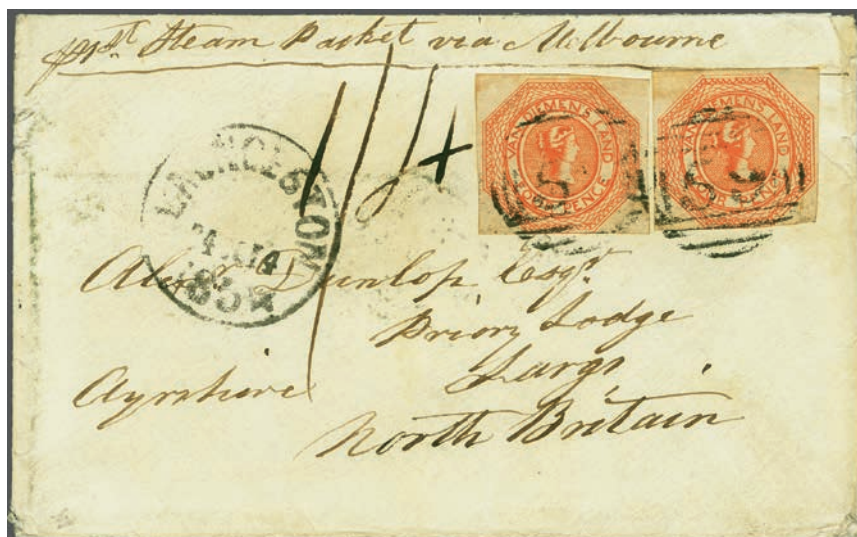 pr 1st Steam Packet via Melbourne
1/4
VAN DIEMENS LAND
FOUR PENCE
VAN DIEMENS LAND
FOUR PENCE
LAUNCESTON
Alexr Dunlop Esqr
Priory Lodge
Largs
Ayrshire
North Britain